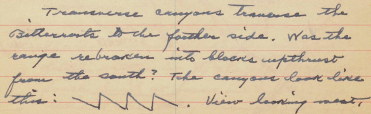 Transverse canyons traverse the
Bitterroots to the farther side. Was the
range rebroken into blocks upthrust
from the south? The canyons look like
this: . View looking west,